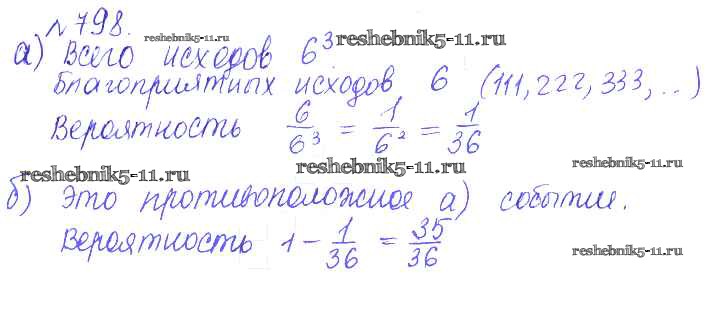 №798.
reshebnik5-11.ru
а) Всего исходов 6³ reshebnik5-11.ru
Благоприятных исходов 6 (111, 222, 333, ...)
Вероятность 6/6³ = 1/6² = 1/36
reshebnik5-11.ru reshebnik5-11.ru reshebnik5-11.ru
б) Это противоположное а) событие.
Вероятность 1 - 1/36 = 35/36
reshebnik5-11.ru